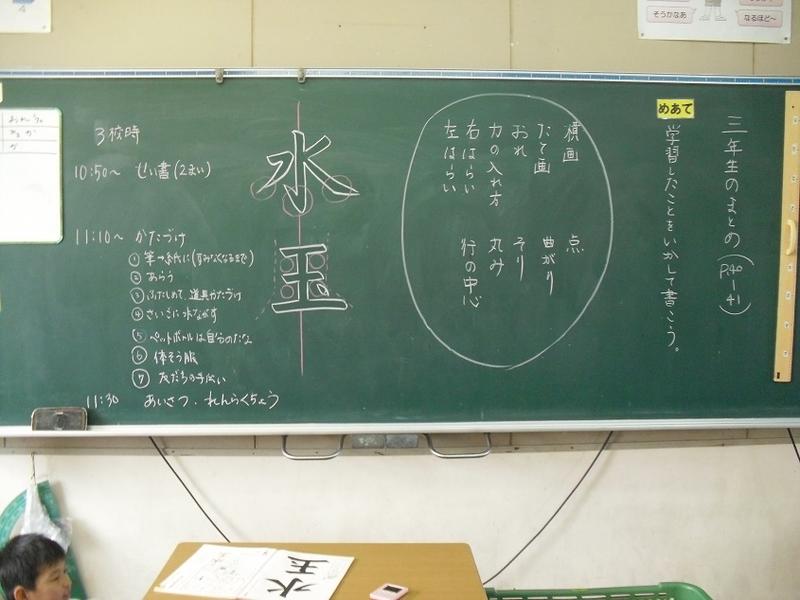 そうかなあ
なるほど～
三年生のまとめ(P.40ー41)
めあて
学習したことをいかして書こう。
横画 点
たて画 曲がり
おれ そり
力の入れ方 丸み
右はらい 行の中心
左はらい
水玉
3校時
10:50～ せい書(2まい)
11:10～ かたづけ
①筆→紙に(すみなくなるまで)
②あらう
③ふたしめて、道具かたづけ
④さいごに水ながす
⑤ペットボトルは自分のたな
⑥体そう服
⑦友だちの手伝い
11:30 あいさつ・れんらくちょう
水玉